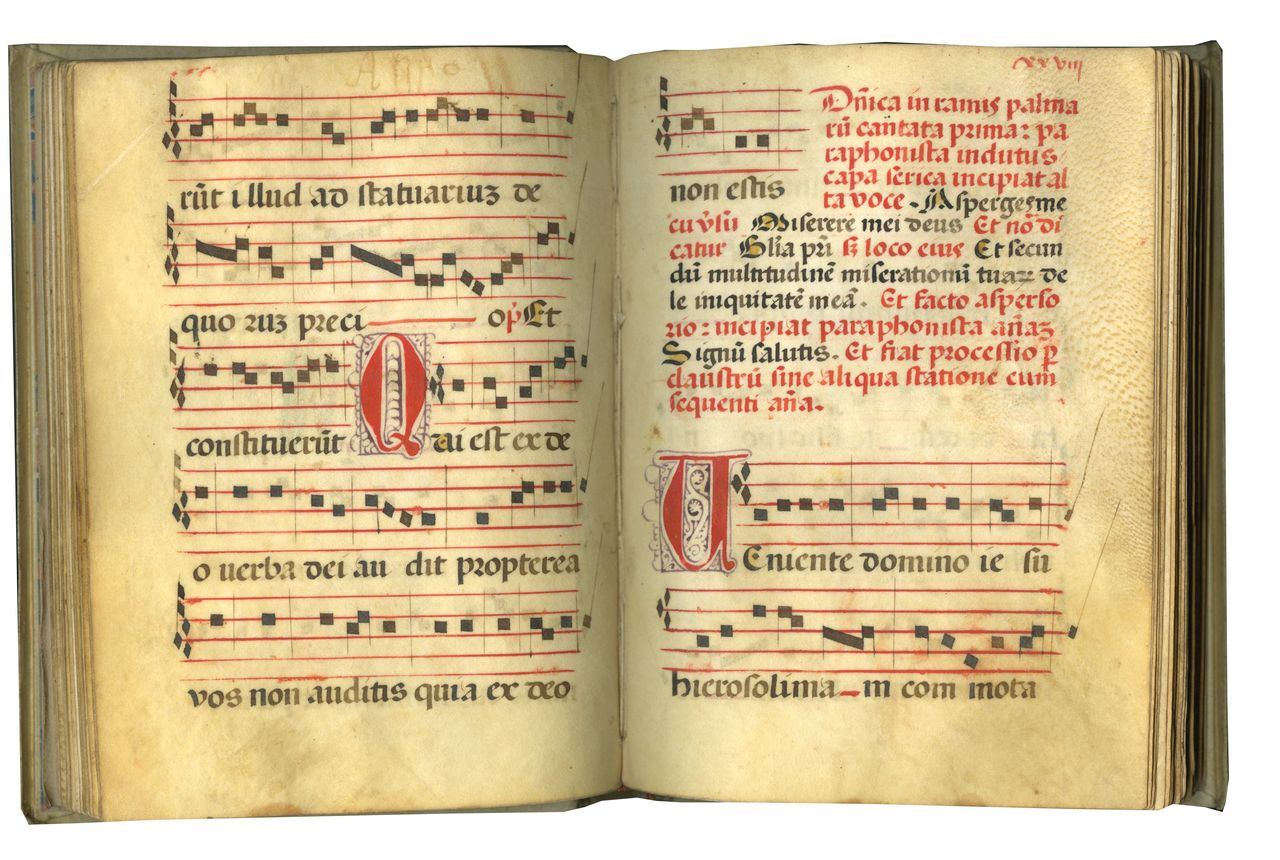 rūt illud ad statuariuꝫ de
quo ruꝫ preci op̄ Et
constituerūt Qui est ex de
o uerba dei au dit propterea
vos non auditis quia ex deo
xxviij
non estis
Dn̄ica in ramis palma
rū cantata prima: pa
raphonista indutus
capa serica incipiat al
ta voce. Asperges me
cū v̄su Miserere mei deus Et nō di
catur Gl̄ia pr̄i sꝫ loco eius Et secun
dū multitudinē miserationū tuaꝝ de
le iniquitatē meā. Et facto asperso
rio: incipiat paraphonista an̄aꝫ
Signū salutis. Et fiat processio ꝑ
claustrū sine aliqua statione cum
sequenti an̄a.
UEniente domino ie su
hierosolima in com mota